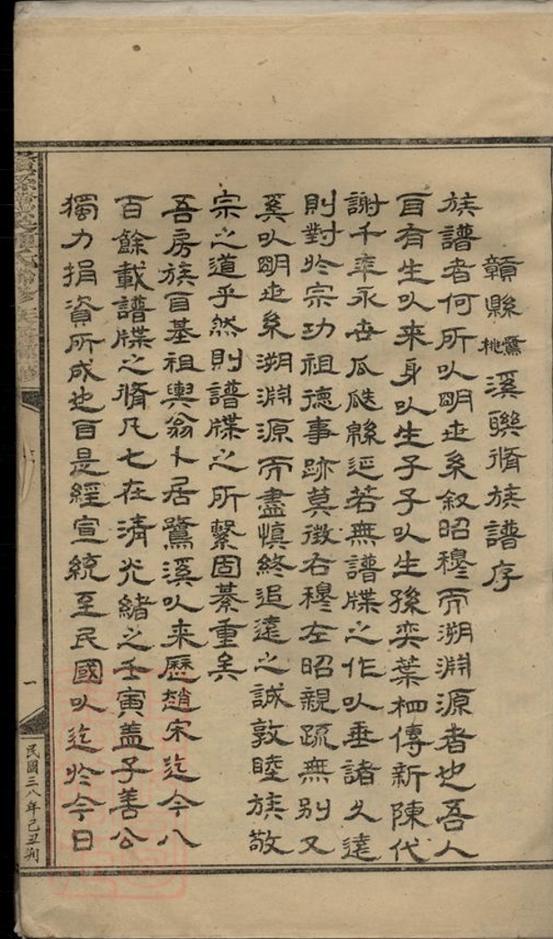 贛縣鷺桃溪聯脩族譜序
族譜者何所以明世系叙昭穆而溯淵源者也吾人
自有生以來身以生子子以生孫奕葉相傳新陳代
謝千年永世瓜瓞緜延若無譜牒之作以垂諸久遠
則對於宗功祖德事跡莫徵右穆左昭親疏無別又
奚以明世系溯淵源而盡慎終追遠之誠敦睦族敬
宗之道乎然則譜牒之所繫固綦重矣
吾房族自基祖輿翁卜居鷺溪以來歷趙宋迄今八
百餘載譜牒之脩凡七在清光緒之壬寅盖子善公
獨力捐資所成也自是經宣統至民國以迄於今日
一
民國三八年己丑刊